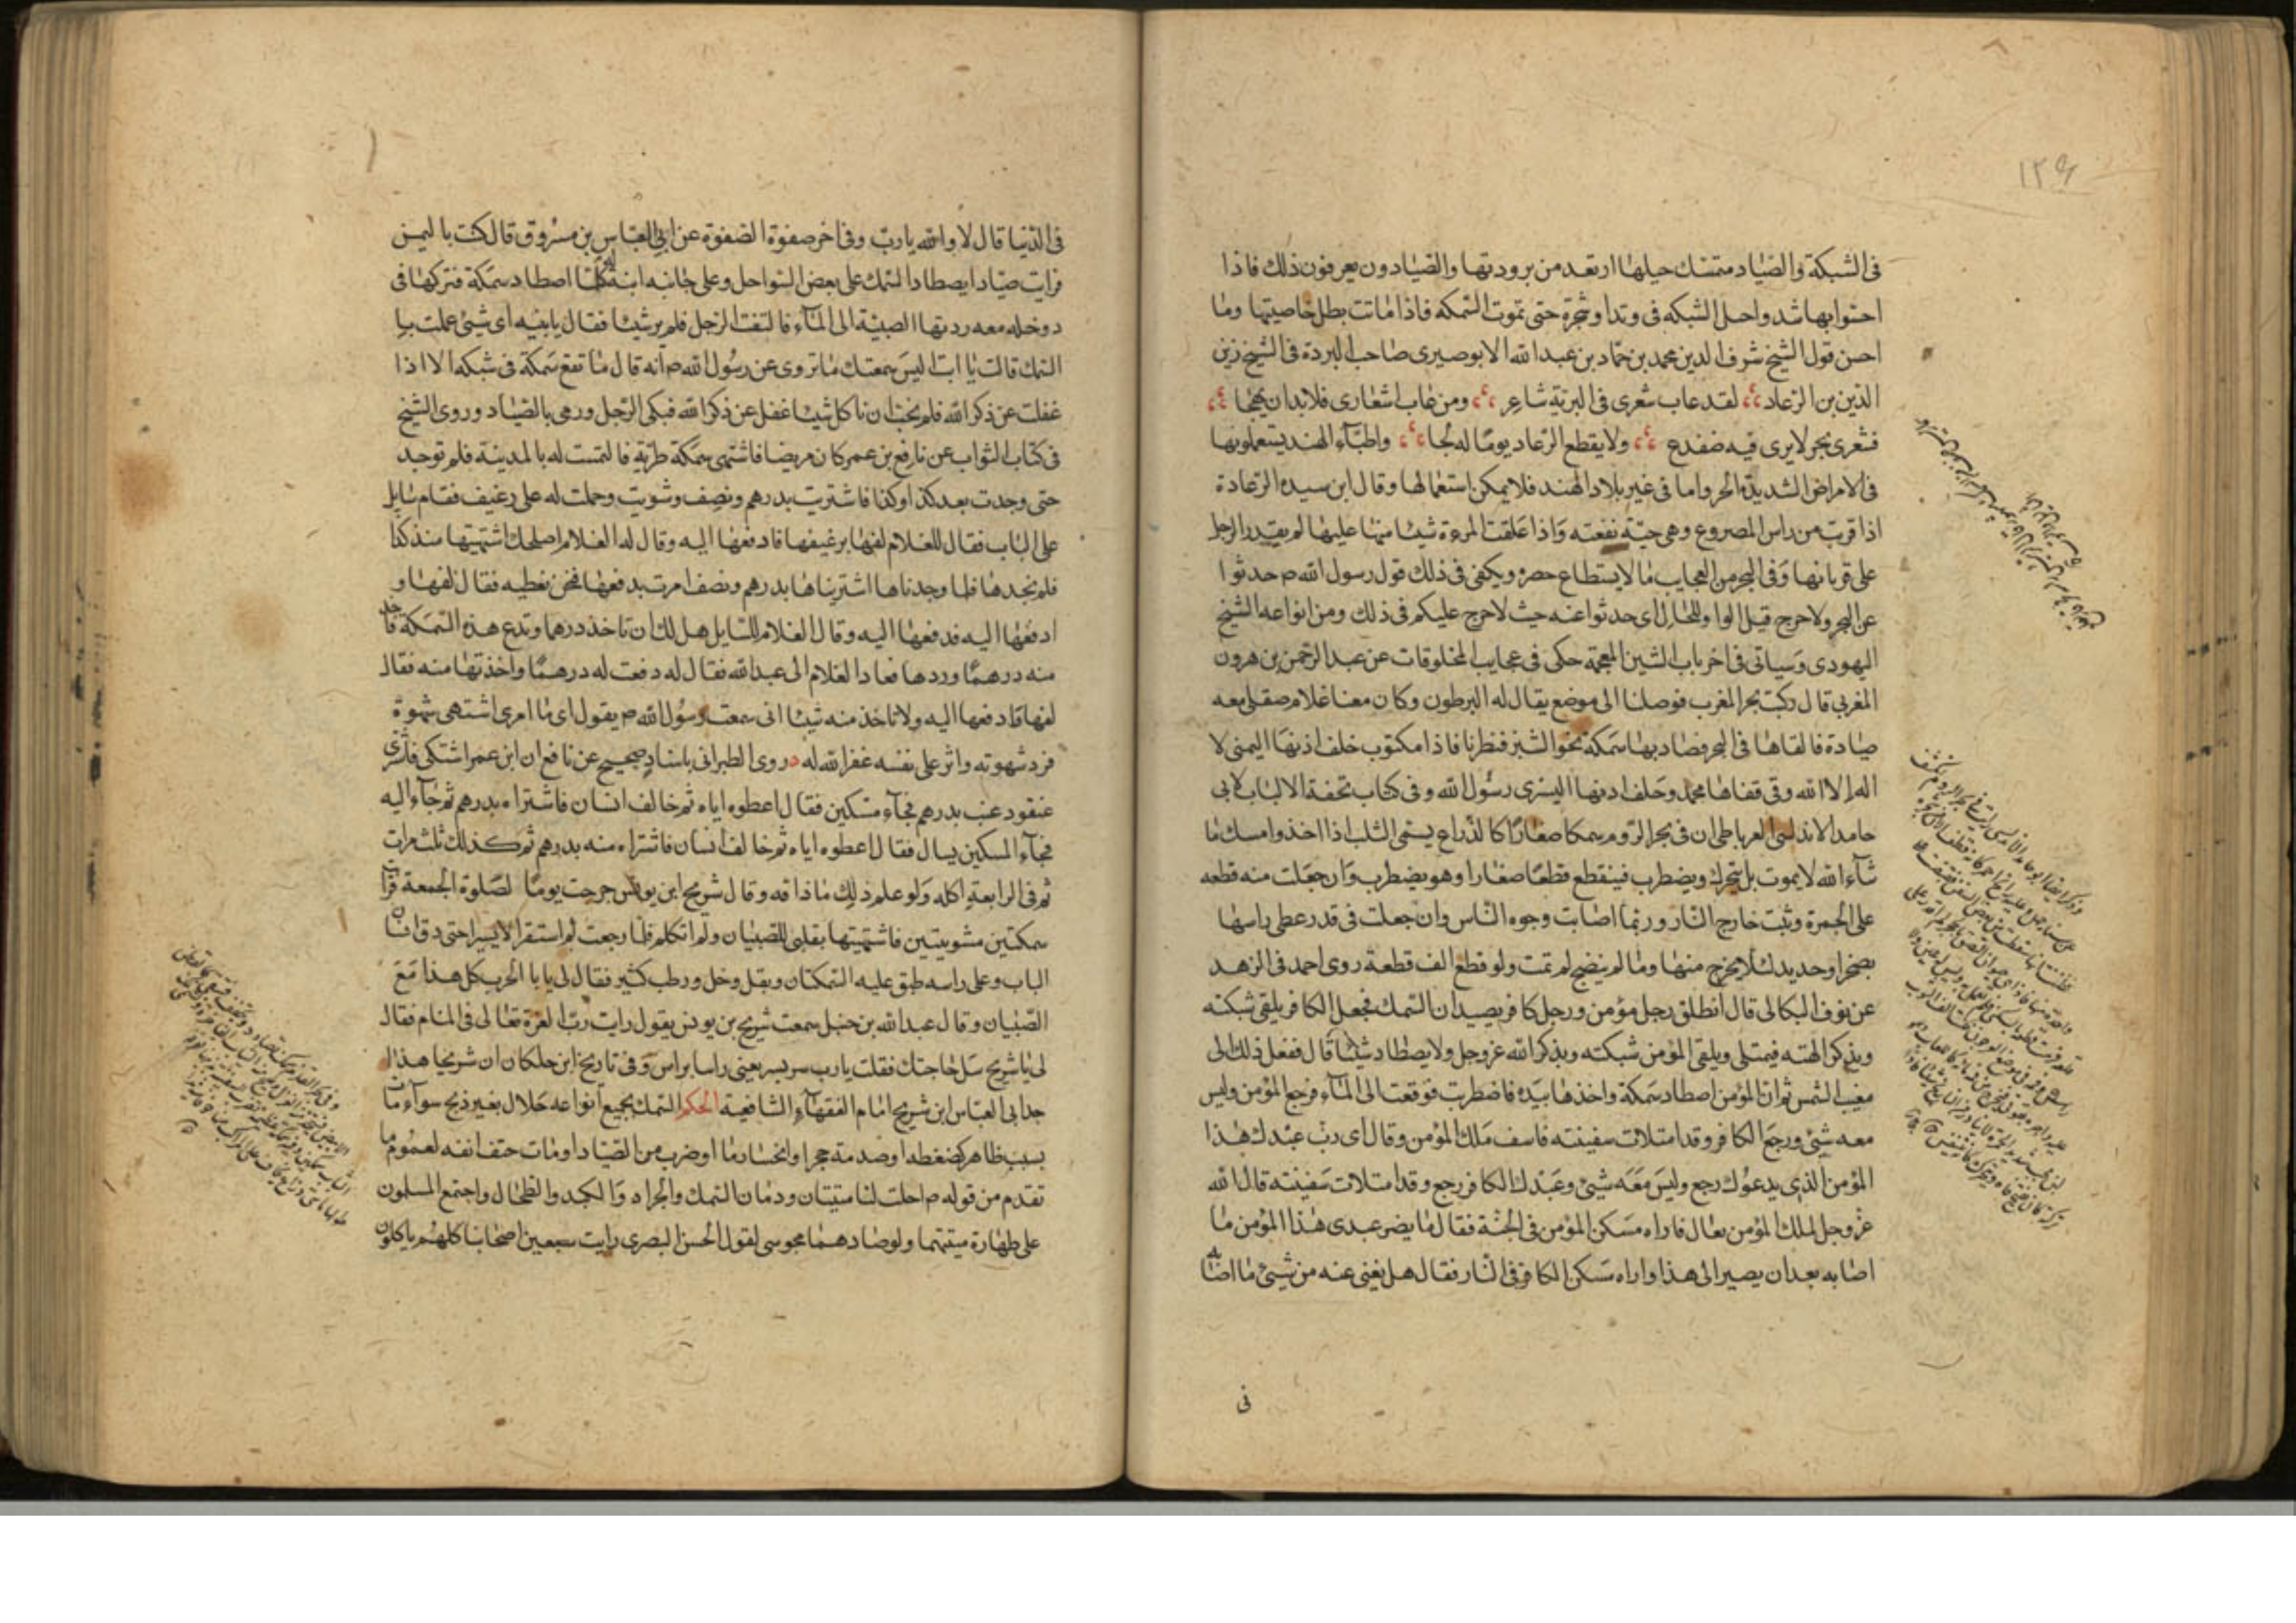 ١٢٩
فى الشبكة والصياد متمسك حبلها ارتعد من برودتها والصيادون يعرفون ذلك فاذا
احسوا بها شدوا حبل الشبكه فى وتد او شجرة حتى تموت السمكه فاذا ماتت بطل خاصيتها وما
احسن قول الشيخ شرف الدين محمد بن حماد بن عبد الله الابوصيرى صاحب البردة فى الشيخ زين
الدين بن الرعاد لقد عاب شعرى فى البرية شاعر ومن عاب اشعارى فلا بد ان يهجا
فشعرى بحر لا يرى فيه ضفدع ولا يقطع الرعاد يوما له لجا واطباء الهند يستعملونها
فى الامراض الشديدة الحر واما فى غير بلاد الهند فلا يمكن استعمالها وقال ابن سيده الرعادة
اذا قربت من راس المصروع وهى حية نفعته واذا علقت المرءة شيئا منها عليها لم يقدر الرجل
على قربانها وفى البحر من العجايب ما لا يستطاع حصره ويكفى فى ذلك قول رسول الله ص حدثوا
عن البحر ولا حرج قيل الواو للحال اى حدثوا عنه حيث لا حرج عليكم فى ذلك ومن انواعه الشيخ
اليهودى وسياتى فى اخر باب الشين المعجمة حكى فى عجايب المخلوقات عن عبد الرحمن بن هرون
المغربى قال ركبت بحر المغرب فوصلنا الى موضع يقال له البرطون وكان معنا غلام صقلى معه
صيادة فالقاها فى البحر فصاد بها سمكة نحو الشبر فنظرنا فاذا مكتوب خلف اذنها اليمنى لا
اله الا الله وفى قفاها محمد وخلف اذنها اليسرى رسول الله وفى كتاب تحفة الالباب لابى
حامد الاندلسى الغرباطى ان فى بحر الروم سمكا صغارا كالذراع يسمى الثلب اذا اخذ وامسك ما
شاء الله لا يموت بل يتحرك ويضطرب فينقطع قطعا صغارا وهو يضطرب وان جعلت منه قطعه
على الجمرة وثبت خارج النار وربما اصابت وجوه الناس وان جعلت فى قدر غطى راسها
بصخر او حديد لئلا يخرج منها وما لم ينضج لم تمت ولو قطع الف قطعة روى احمد فى الزهد
عن نوف البكالى قال انطلق رجل مؤمن ورجل كافر يصيدان السمك فجعل الكافر يلقى شبكته
ويذكر الهته فيمتلى ويلقى المؤمن شبكته ويذكر الله عز وجل ولا يصطاد شيئا قال ففعل ذلك الى
مغيب الشمس ثم ان المؤمن اصطاد سمكة واخذها بيده فاضطربت فوقعت الى الماء فرجع المؤمن وليس
معه شئ ورجع الكافر وقد امتلات سفينته فاسف ملك المؤمن وقال اى رب عبدك هذا
المؤمن الذى يدعوك رجع وليس معه شئ وعبدك الكافر رجع وقد امتلات سفينته قال الله
عز وجل لملك المؤمن تعال فاراه مسكن المؤمن فى الجنة فقال ما يضر عبدى هذا المؤمن ما
اصابه بعد ان يصير الى هذا واراه سكن الكافر فى النار فقال هل يغنى عنه من شئ ما اصابه
فى
فى الدنيا قال لا والله يا رب وفى اخر صفوة الصفوة عن ابى العباس بن مسروق قال كنت باليمن
فرايت صيادا يصطاد السمك على بعض السواحل وعلى جانبه ابنة له كلما اصطاد سمكة فتركها فى
دوخله معه ردتها الصبية الى الماء فالتفت الرجل فلم ير شيئا فقال يا بنيه اى شئ عملت با
السمك قالت يا ابت اليس سمعتك ما تروى عن رسول الله ص انه قال ما تقع سمكة فى شبكه الا اذا
غفلت عن ذكر الله فلم نحب ان ناكل شيئا غفل عن ذكر الله فبكى الرجل ورمى بالصياد وروى الشيخ
فى كتاب الثواب عن نافع بن عمر كان مريضا فاشتهى سمكة طرية فالتمست له بالمدينة فلم توجد
حتى وجدت بعد كذا وكذا فاشتريت بدرهم ونصف وشويت وحملت له على رغيف فقام سايل
على الباب فقال للغلام لفها برغيفها فادفعها اليه وقال له الغلام اصلحك اشتهيتها منذ كذا
فلم نجدها فلما وجدناها اشتريناها بدرهم ونصف امرت بدفعها فنحن نعطيه فقال لفها و
ادفعها اليه فدفعها اليه وقال الغلام للسايل هل لك ان تاخذ درهما وتدع هذه السمكة فاخذ
منه درهما وردها فعاد الغلام الى عبد الله فقال له دفعت له درهما واخذتها منه فقال
لفها فادفعها اليه ولا تاخذ منه شيئا انى سمعت رسول الله ص يقول اى ما امرى اشتهى شهوة
فرد شهوته واثر على نفسه غفر الله له وروى الطبرانى باسناد صحيح عن نافع ان ابن عمر اشتكى فاشترى
عنقود عنب بدرهم فجاء مسكين فقال اعطوه اياه ثم خالف انسان فاشتراه بدرهم ثم جاء اليه
فجاء المسكين يسال فقال اعطوه اياه ثم خالف انسان فاشتراه منه بدرهم ثم كذلك ثلث مرات
ثم فى الرابعة اكله ولو علم ذلك ما ذاقه وقال شريح ابن يونس خرجت يوما لصلوة الجمعة فرايت
سمكتين مشويتين فاشتهيتها بقلبى للصبيان ولم اتكلم فلما رجعت لم استقر الا يسيرا حتى دق انسان
الباب وعلى راسه طبق عليه السمكتان وبقل وخل ورطب كثير فقال لى يا با الحرب كل هذا مع
الصبيان وقال عبد الله بن حنبل سمعت شريح بن يونس يقول رايت رب العزة تعالى فى المنام فقال
لى يا شريح سل حاجتك فقلت يا رب سر بسر يعنى راسا براس وفى تاريخ ابن خلكان ان شريحا هذا
جد ابى العباس ابن شريح امام الفقهاء الشافعية الحكم السمك بجميع انواعه حلال بغير ذبح سواء مات
بسبب ظاهر كضغطه او صدمة حجر او انحسار ما او ضرب من الصياد او مات حتف انفه لعموم ما
تقدم من قوله ص احلت لنا ميتتان ودمان السمك والجراد والكبد والطحال واجتمع المسلمون
على طهارة ميتتهما ولو صادهما مجوسى لقول الحسن البصرى رايت سبعين اصحابا كلهم ياكلون